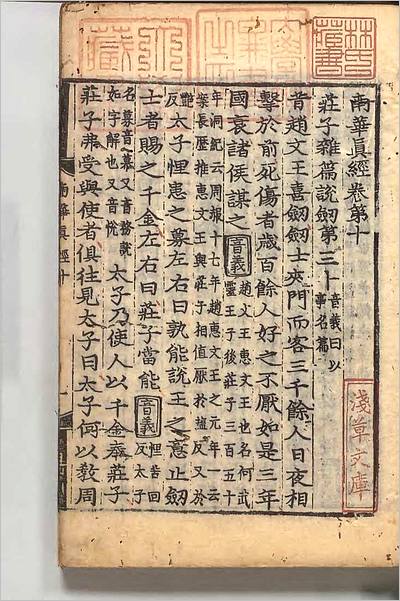 林氏藏書
南華真經卷第十
莊子雜篇說劒第三十
音義曰以
事名篇
昔趙文王喜劒劒士夾門而客三千餘人日夜相
擊於前死傷者歲百餘人好之不厭如是三年
國衰諸侯謀之
音義
趙文王惠文王也名何武
靈王子後莊子三百五十
年洞紀云周赧十七年趙惠文王之元年一云
案長歷推惠文王與莊子相值厭於
反又於
艶
反
太子悝患之募左右曰孰能說王之意止劒
士者賜之千金左右曰莊子當能
音義
悝
反太子
名募音慕又音務說
如字解也又音悅
太子乃使人以千金奉莊子
莊子弗受與使者俱往見太子曰太子何以敎周
淺草文庫